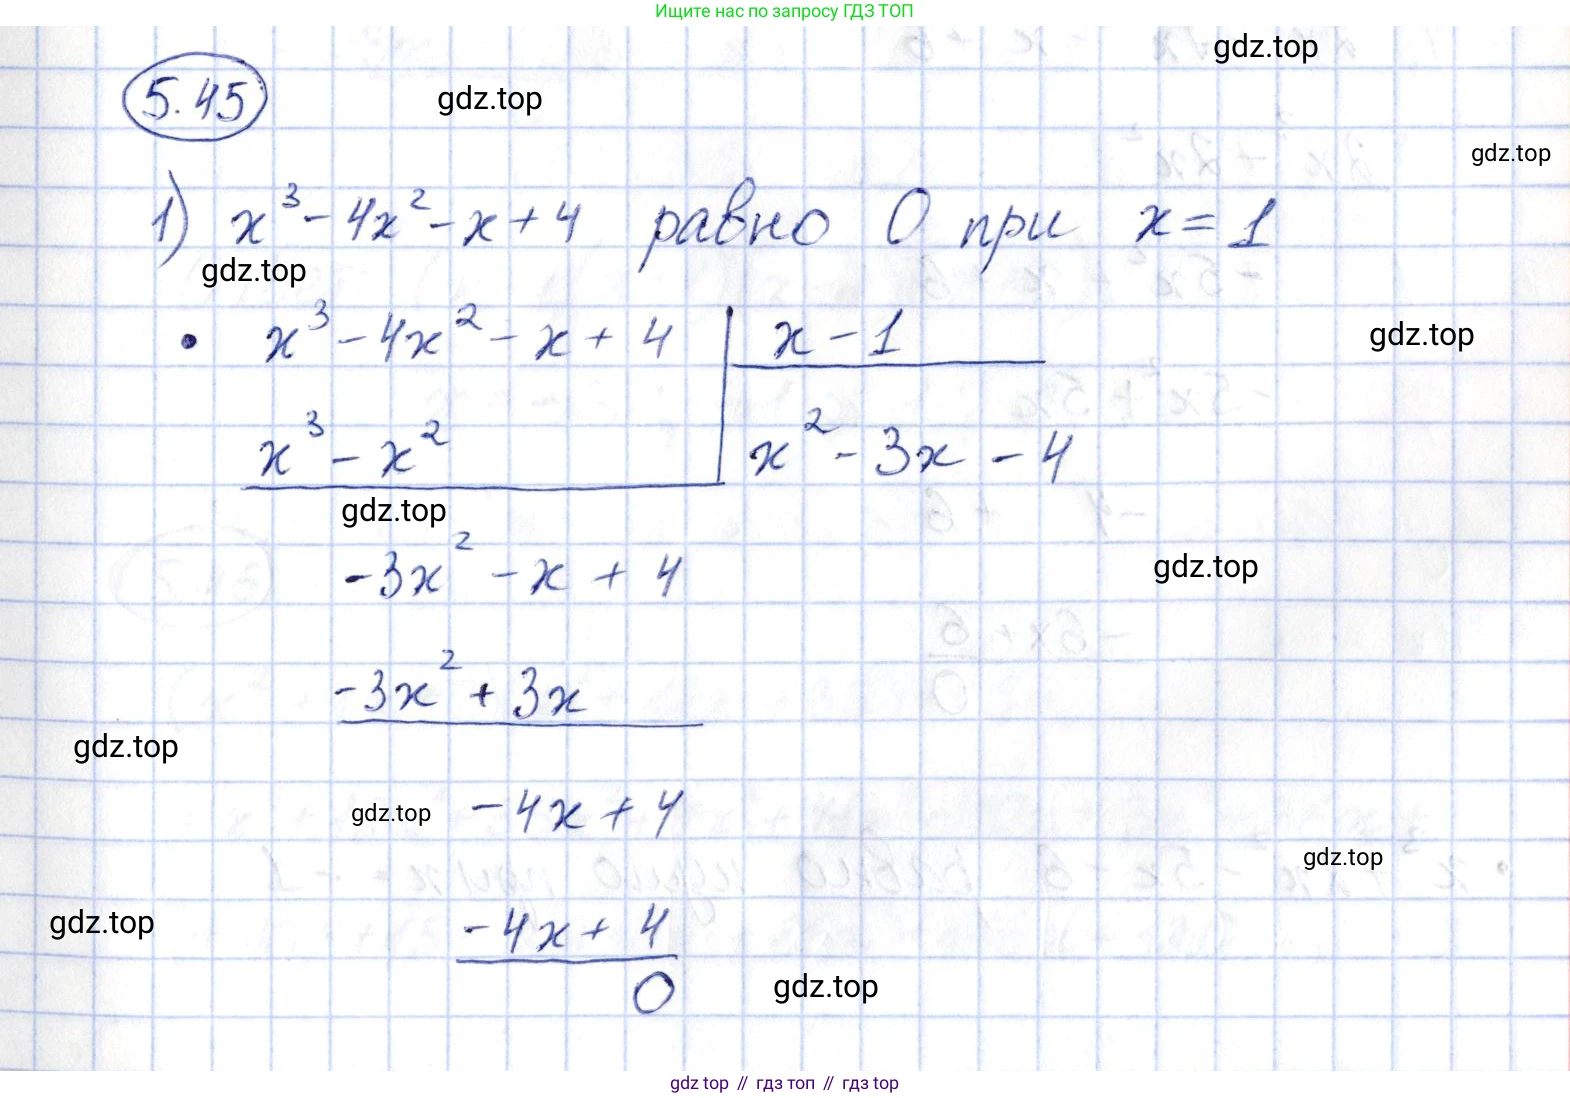 Ищите нас по запросу ГДЗ ТОП
gdz.top
5.45
gdz.top
gdz.top
1) x³ - 4x² - x + 4 равно 0 при x = 1
gdz.top
• x³ - 4x² - x + 4 | x - 1
gdz.top
x³ - x² | x² - 3x - 4
gdz.top
-3x² - x + 4
gdz.top
-3x² + 3x
gdz.top
-4x + 4
gdz.top
gdz.top
-4x + 4
gdz.top
0
gdz.top
gdz top // гдз топ // гдз top